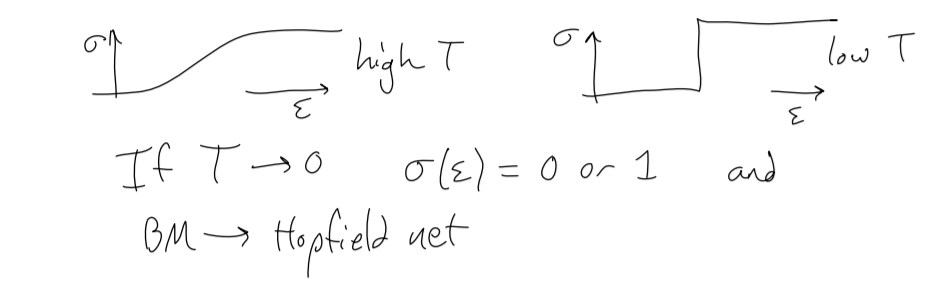 σ high T σ low T
ε ε
If T → 0 σ(ε) = 0 or 1 and
BM → Hopfield net